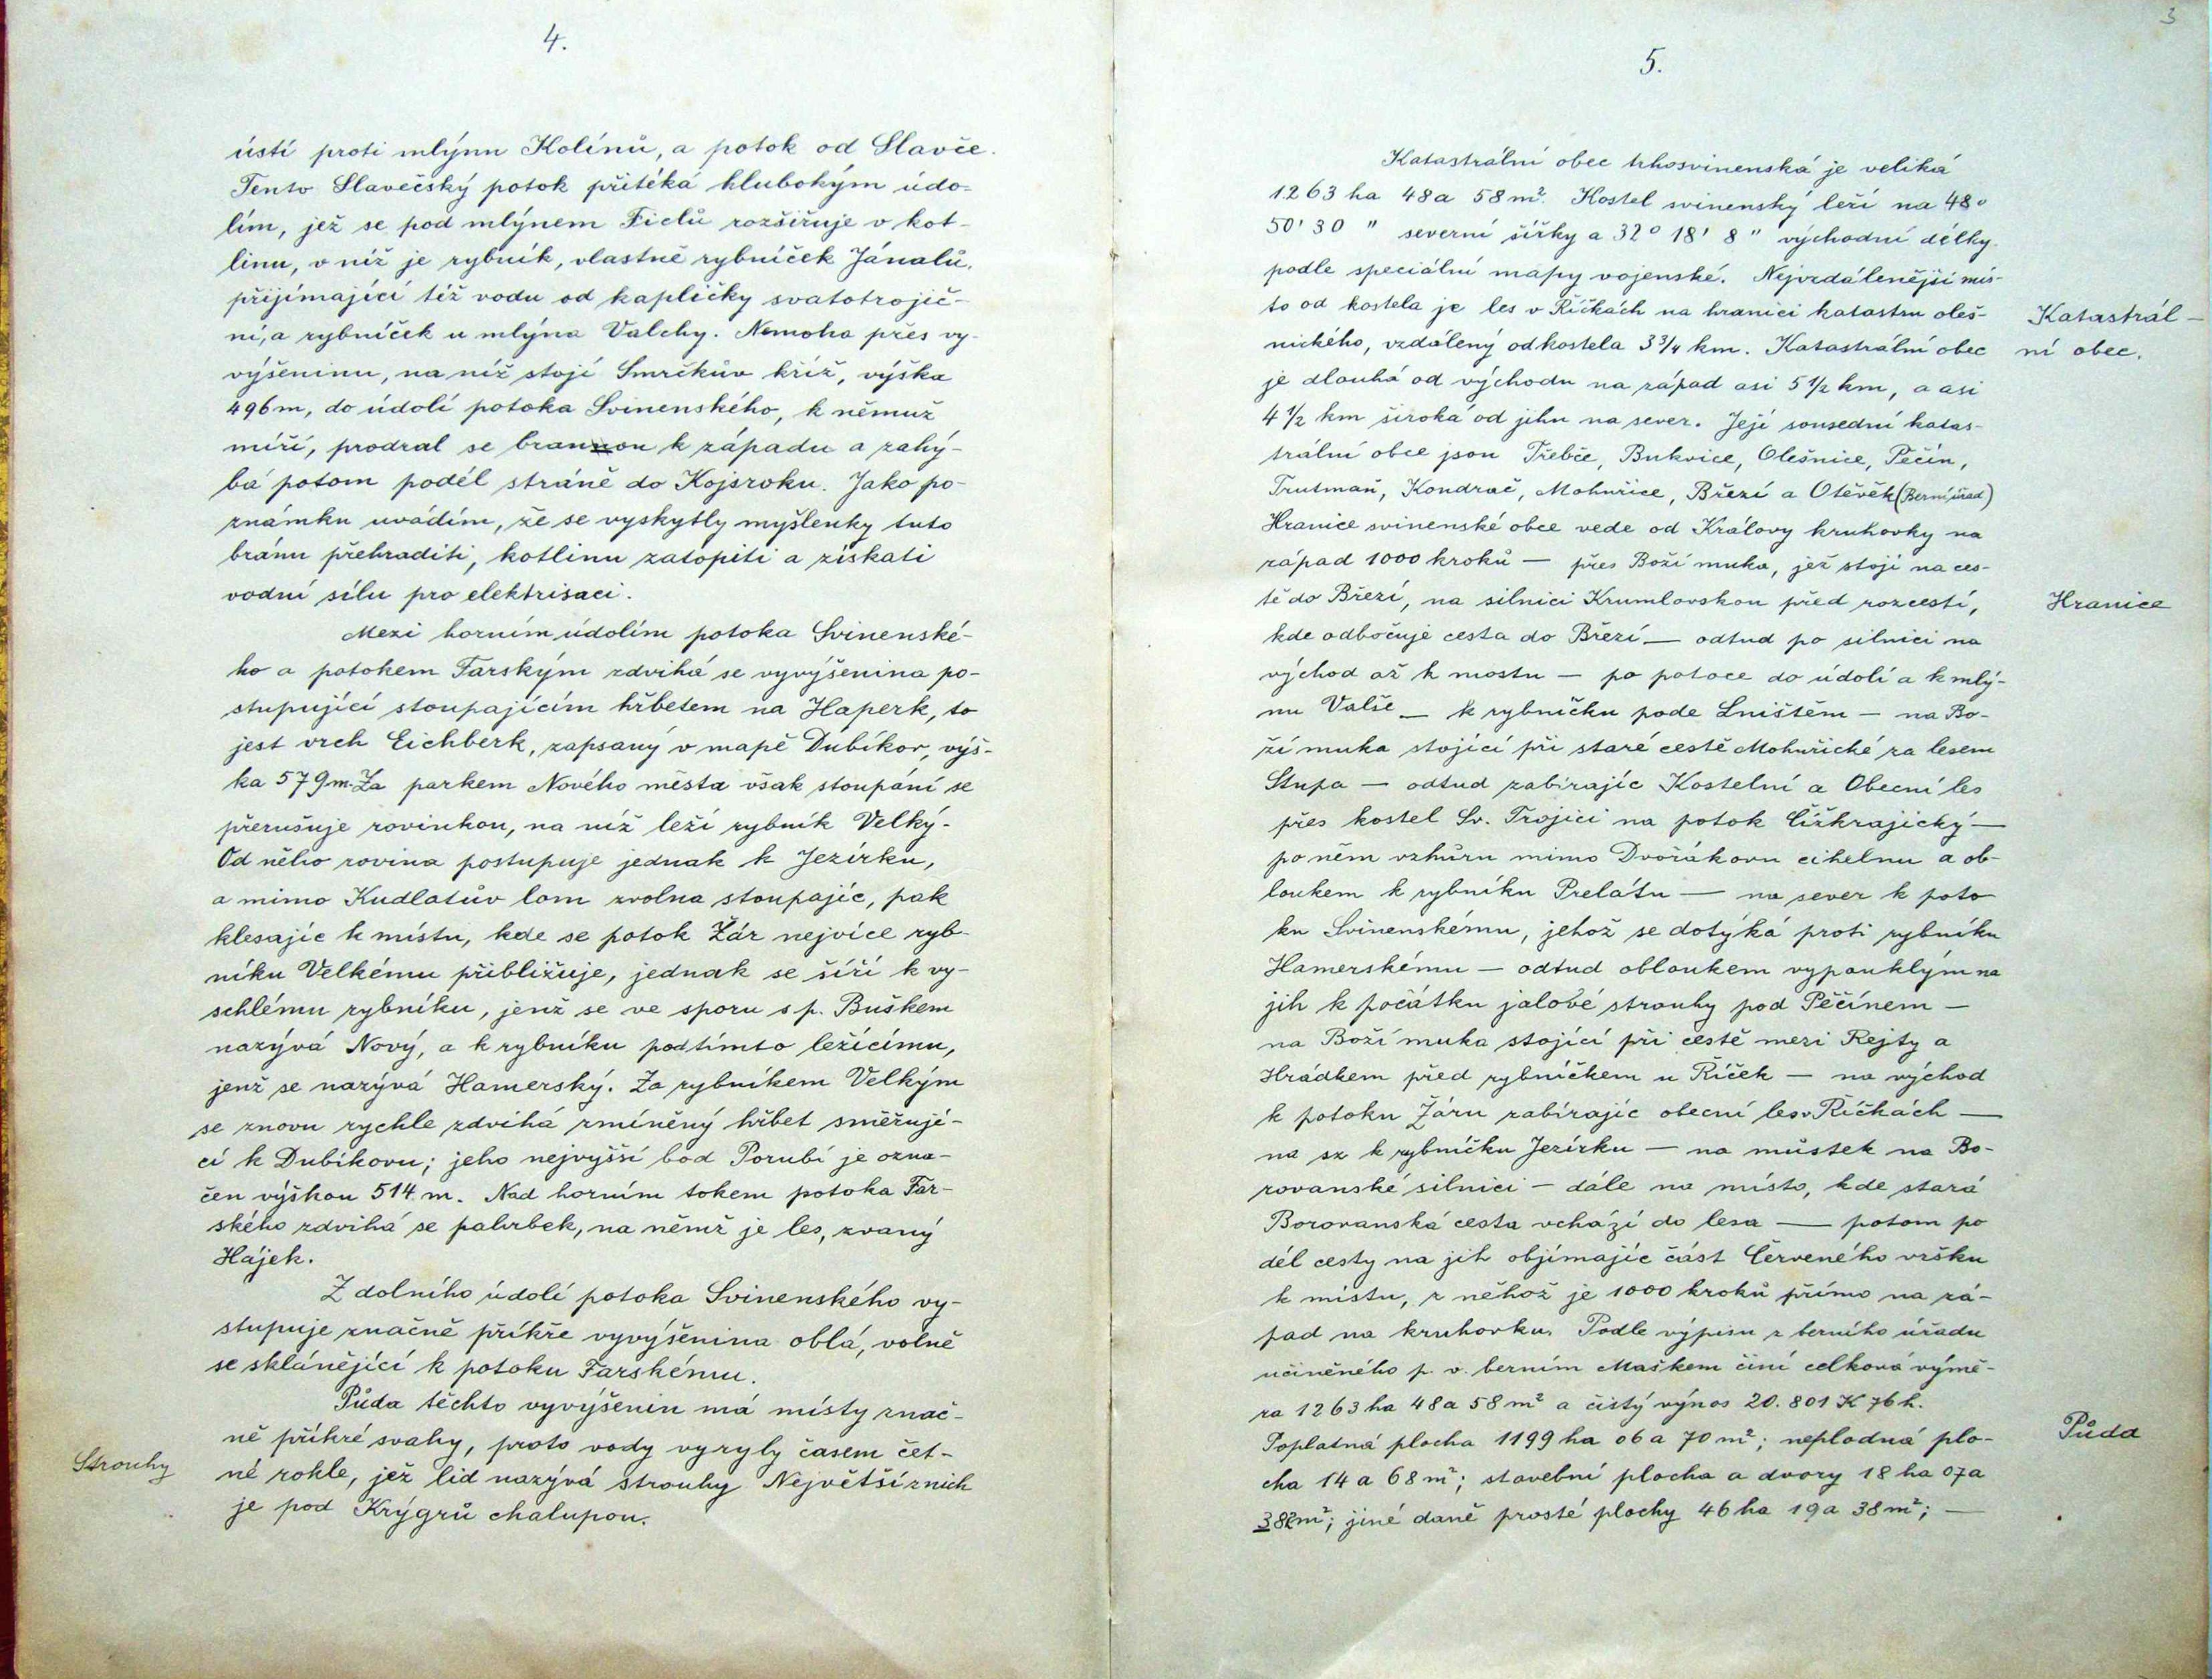 4.
ústí proti mlýnu Kolínů, a potok od Slavče.
Tento Slavečský potok přitéká hlubokým údo-
lím, jež se pod mlýnem Ficlů rozšiřuje v kot-
linu, v níž je rybník, vlastně rybníček Jánalů,
přijímající též vodu od kapličky svatotrojič-
ní, a rybníček u mlýna Valchy. Nemoha přes vy-
výšeninu, na níž stojí Smrčkův kříž, výška
496 m, do údolí potoka Svinenského, k němuž
míří, prodral se branou k západu a zahý-
bá potom podél stráně do Kojsroku. Jako po-
známku uvádím, že se vyskytly myšlenky tuto
bránu přehraditi, kotlinu zatopiti a získati
vodní sílu pro elektrisaci.
Mezi horním údolím potoka Svinenské-
ho a potokem Farským zdvihá se vyvýšenina po-
stupující stoupajícím hřbetem na Haperk, to
jest vrch Eichberk, zapsaný v mapě Dubíkov, výš-
ka 579 m. Za parkem Nového města však stoupání se
přerušuje rovinkou, na níž leží rybník Velký.
Od něho rovina postupuje jednak k Jezírku,
a mimo Kudlatův lom zvolna stoupajíc, pak
klesajíc k místu, kde se potok Žár nejvíce ryb-
níku Velkému přibližuje, jednak se šíří k vy-
schlému rybníku, jenž se ve sporu s p. Buškem
nazývá Nový, a k rybníku pod tímto ležícímu,
jenž se nazývá Hamerský. Za rybníkem Velkým
se znovu rychle zdvihá zmíněný hřbet směřují-
cí k Dubíkovu; jeho nejvyšší bod Porubí je ozna-
čen výškou 514 m. Nad horním tokem potoka Far-
ského zdvihá se pahrbek, na němž je les, zvaný
Hájek.
Z dolního údolí potoka Svinenského vy-
stupuje značně příkře vyvýšenina oblá, volně
se sklánějící k potoku Farskému.
Půda těchto vyvýšenin má místy znač-
ně příkré svahy, proto vody vyryly časem čet-
Strouhy
né rokle, jež lid nazývá strouhy Největší z nich
je pod Krýgrů chalupou.
3
5.
Katastrální obec trhosvinenská je veliká
1263 ha 48 a 58 m². Kostel svinenský leží na 48°
50' 30" severní šířky a 32° 18' 8" východní délky
podle speciální mapy vojenské. Nejvzdálenější mís-
to od kostela je les v Říčkách na hranici katastru oleš-
Katastrál-
nického, vzdálený od kostela 3 3/4 km. Katastrální obec
ní obec.
je dlouhá od východu na západ asi 5 1/2 km, a asi
4 1/2 km široká od jihu na sever. Její sousední katas-
trální obce jsou Třebče, Bukvice, Olešnice, Pěčín,
Trutmaň, Kondrač, Mohuřice, Březí a Otěvěk (Berní úřad)
Hranice svinenské obce vede od Královy kruhovky na
západ 1000 kroků — přes Boží muka, jež stojí na ces-
tě do Březí, na silnici Krumlovskou před rozcestí,
Hranice
kde odbočuje cesta do Březí — odtud po silnici na
východ až k mostu — po potoce do údolí a k mlý-
nu Valše — k rybníčku pode Lništěm — na Bo-
ží muka stojící při staré cestě Mohuřické za lesem
Stupa — odtud zabírajíc Kostelní a Obecní les
přes kostel Sv. Trojici na potok Čížkrajický —
po něm vzhůru mimo Dvořákovu cihelnu a ob-
loukem k rybníku Prelátu — na sever k poto
ku Svinenskému, jehož se dotýká proti rybníku
Hamerskému — odtud obloukem vypouklým na
jih k počátku jalové strouhy pod Pěčínem —
na Boží muka stojící při cestě mezi Rejty a
Hrádkem před rybníčkem u Říček — na východ
k potoku Žáru zabírajíc obecní les v Říčkách —
na sz k rybníčku Jezírku — na můstek na Bo-
rovanské silnici — dále na místo, kde stará
Borovanská cesta vchází do lesa — potom po
děl cesty na jih objímajíc část Červeného vršku
k místu, z něhož je 1000 kroků přímo na zá-
pad na kruhovku. Podle výpisu z berního úřadu
učiněného p. v. berním Maškem činí celková výmě-
ra 1263 ha 48 a 58 m² a čistý výnos 20.801 K 76 h.
Poplatná plocha 1199 ha 06 a 70 m²; neplodná plo-
Půda
cha 14 a 68 m²; stavební plocha a dvory 18 ha 07 a
382 m²; jiné daně prosté plochy 46 ha 19 a 38 m²; —